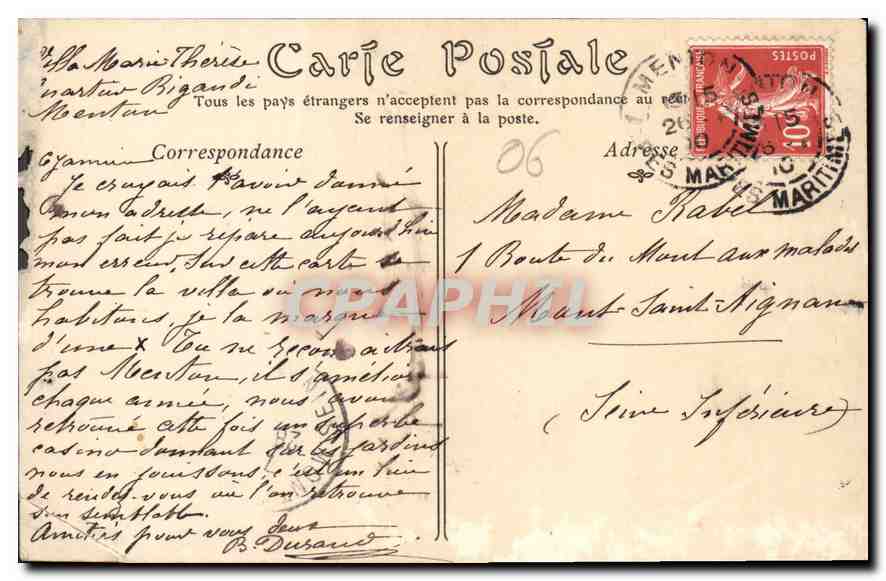 Villa Marie Thérèse
quartier Rigaudi
Menton
Carte Postale
Tous les pays étrangers n'acceptent pas la correspondance au
Se renseigner à la poste.
Correspondance
Adresse
06
Je croyais t'avoir donné
mon adresse, ne l'ayant
pas fait je répare aujourd'hui
mon erreur, sur cette carte se
trouve la villa où nous
habitons, je la marque
d'une x Tu ne reconnaîtrais
pas Menton, il s'améliore
chaque année, nous avons
retrouvé cette fois un superbe
casino donnant sur les jardins
nous en jouissons, c'est un lieu
de rendez-vous où l'on retrouve
son semblable.
Amitiés pour vous deux
B. Durand
Madame Rabel
1 Route du Mont aux malades
Mont-Saint-Aignan
(Seine Inférieure)
REPUBLIQUE FRANÇAISE
POSTES
10
MENTON
MARITIMES
MENTON
MARITIMES
CPAPHIL